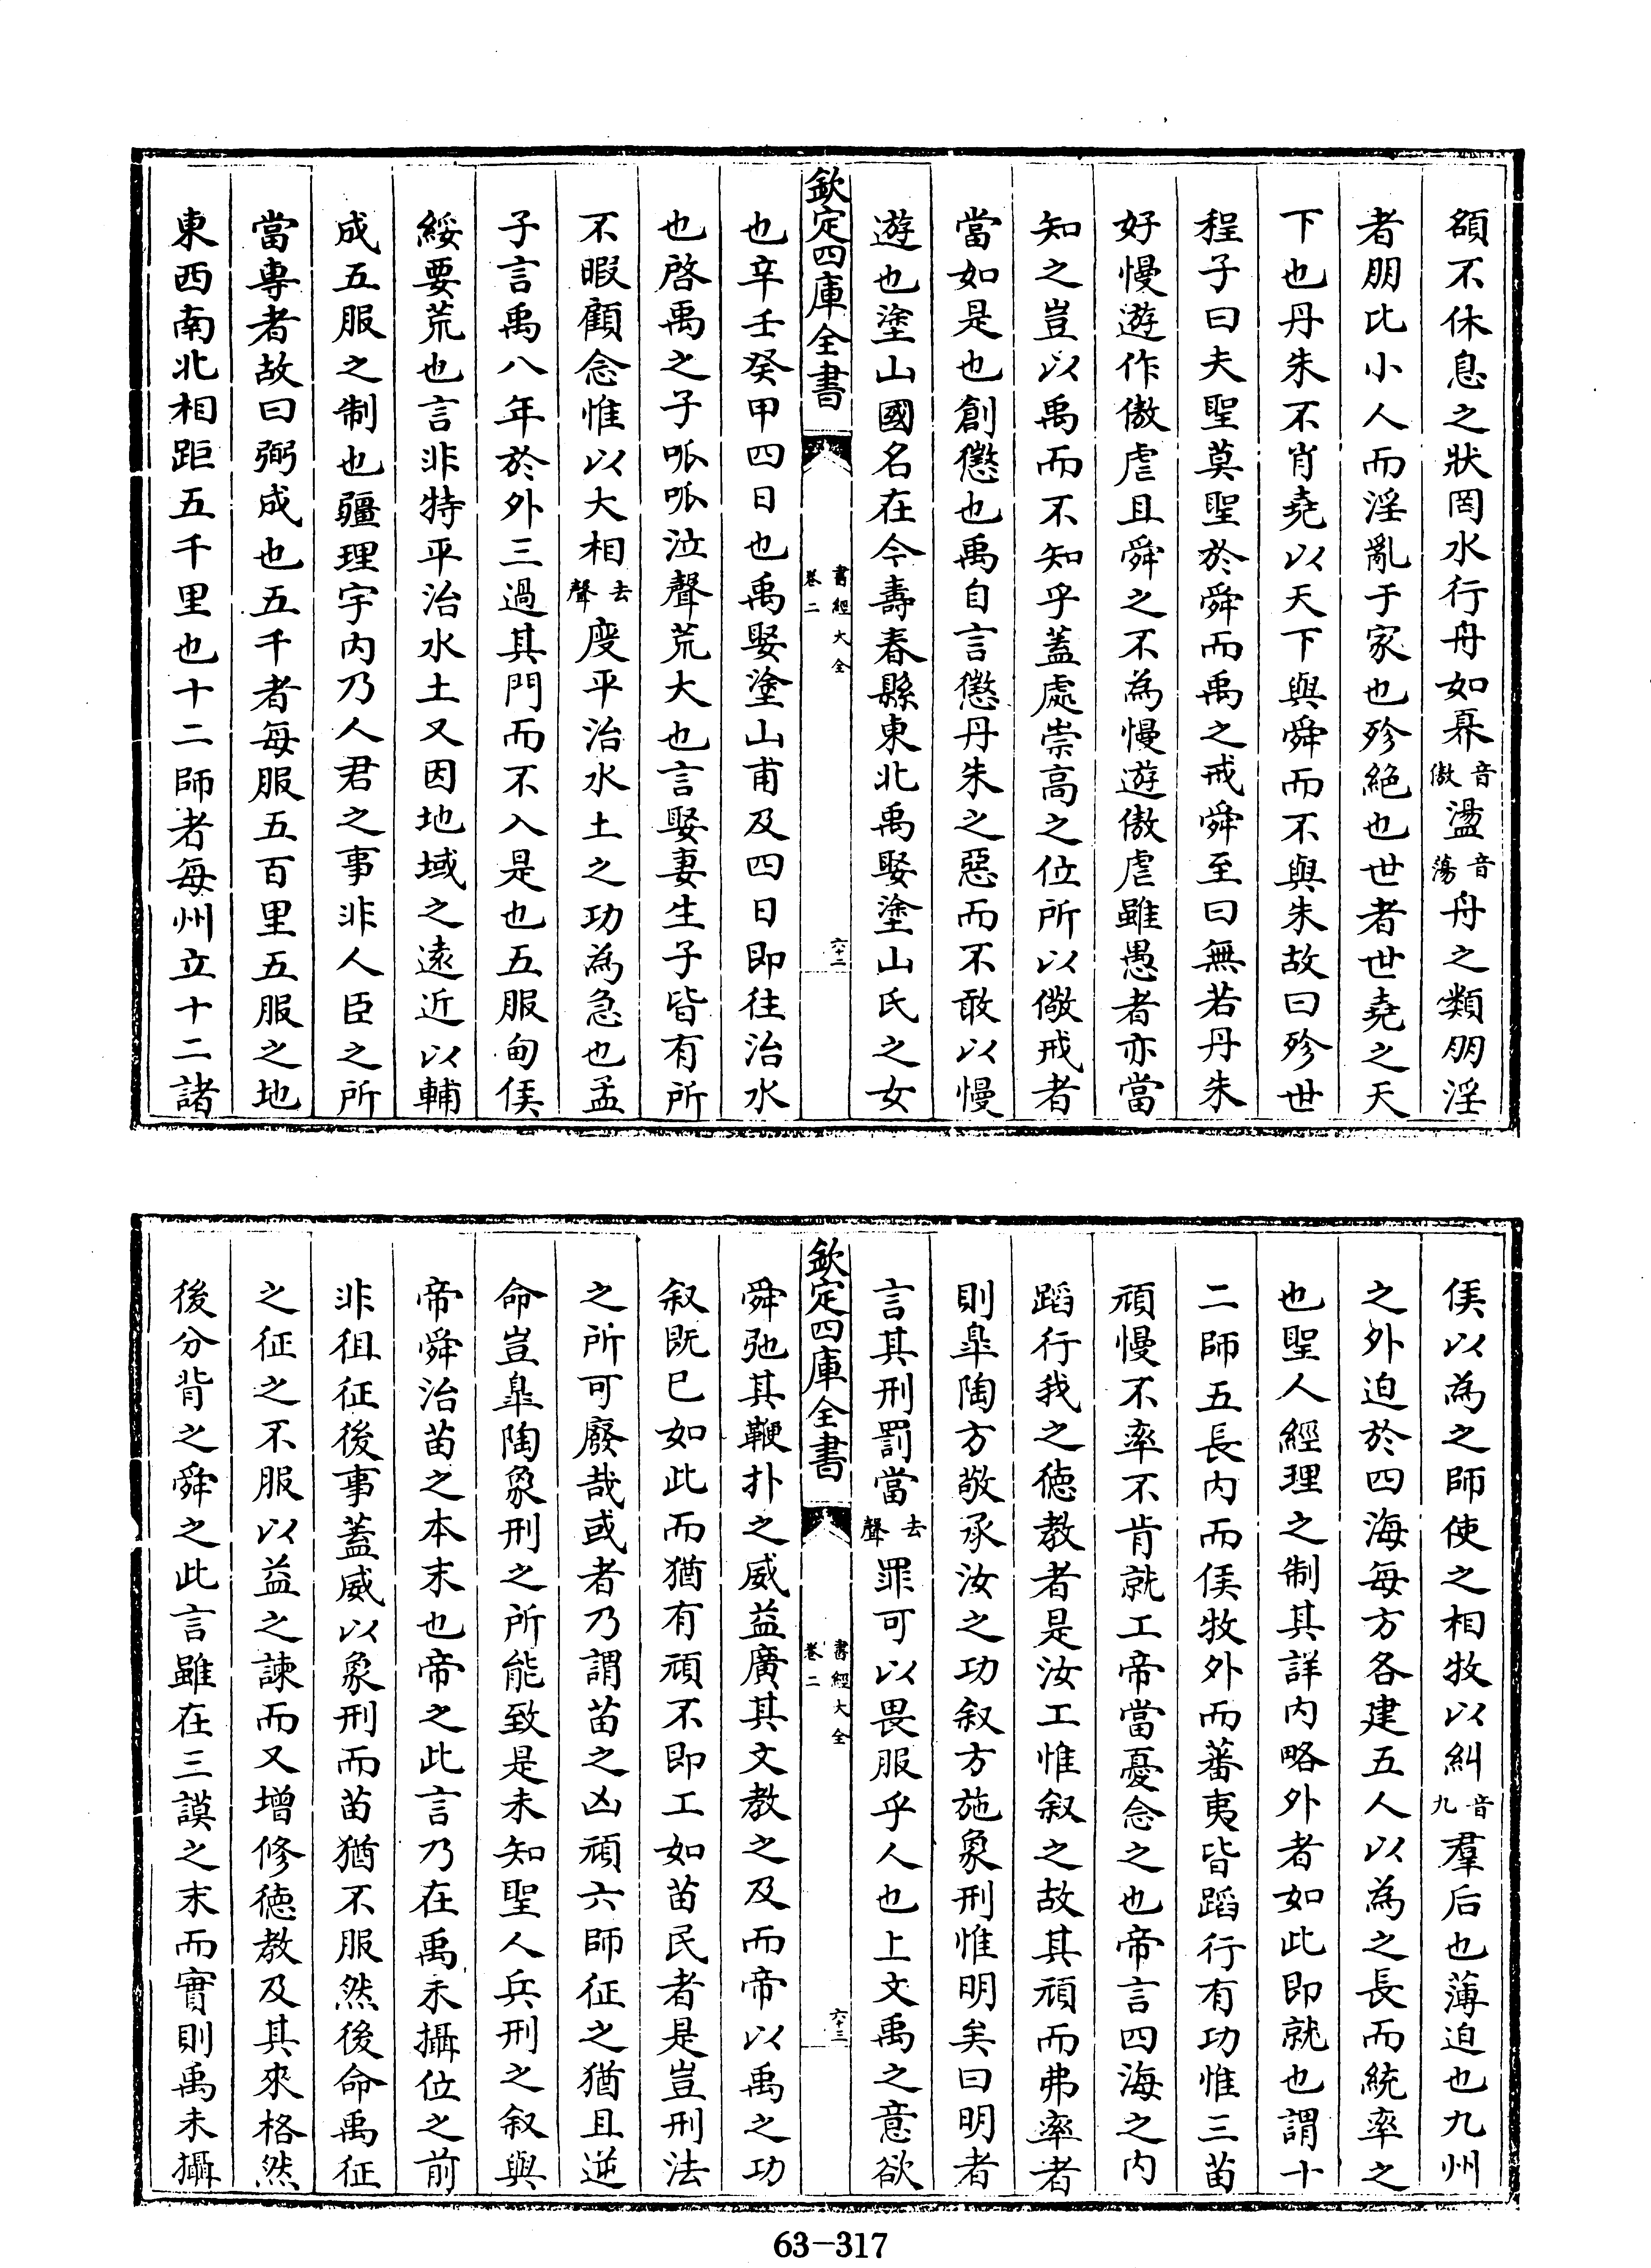 頟不休息之狀罔水行舟如奡音傲盪音蕩舟之類朋淫
者朋比小人而淫亂于家也殄絶也世者世堯之天
下也丹朱不肖堯以天下與舜而不與朱故曰殄世
程子曰夫聖莫聖於舜而禹之戒舜至曰無若丹朱
好慢遊作傲虐且舜之不為慢遊傲虐雖愚者亦當
知之豈以禹而不知乎蓋處崇高之位所以儆戒者
當如是也創懲也禹自言懲丹朱之惡而不敢以慢
遊也塗山國名在今壽春縣東北禹娶塗山氏之女
欽定四庫全書 書經大全 卷二 六十二
也辛壬癸甲四日也禹娶塗山甫及四日即往治水
也啓禹之子呱呱泣聲荒大也言娶妻生子皆有所
不暇顧念惟以大相去聲度平治水土之功為急也孟
子言禹八年於外三過其門而不入是也五服甸侯
綏要荒也言非特平治水土又因地域之遠近以輔
成五服之制也疆理宇内乃人君之事非人臣之所
當專者故曰弼成也五千者每服五百里五服之地
東西南北相距五千里也十二師者每州立十二諸
侯以為之師使之相牧以糾音九羣后也薄迫也九州
之外迫於四海每方各建五人以為之長而統率之
也聖人經理之制其詳内略外者如此即就也謂十
二師五長内而侯牧外而蕃夷皆蹈行有功惟三苗
頑慢不率不肯就工帝當憂念之也帝言四海之内
蹈行我之徳教者是汝工惟叙之故其頑而弗率者
則臯陶方敬承汝之功叙方施象刑惟明矣曰明者
言其刑罰當去聲罪可以畏服乎人也上文禹之意欲
欽定四庫全書 書經大全 卷二 六十三
舜弛其鞭扑之威益廣其文教之及而帝以禹之功
叙既已如此而猶有頑不即工如苗民者是豈刑法
之所可廢哉或者乃謂苗之凶頑六師征之猶且逆
命豈臯陶象刑之所能致是未知聖人兵刑之叙與
帝舜治苗之本末也帝之此言乃在禹未攝位之前
非徂征後事蓋威以象刑而苗猶不服然後命禹征
之征之不服以益之諫而又增修徳教及其來格然
後分背之舜之此言雖在三謨之末而實則禹未攝
63-317